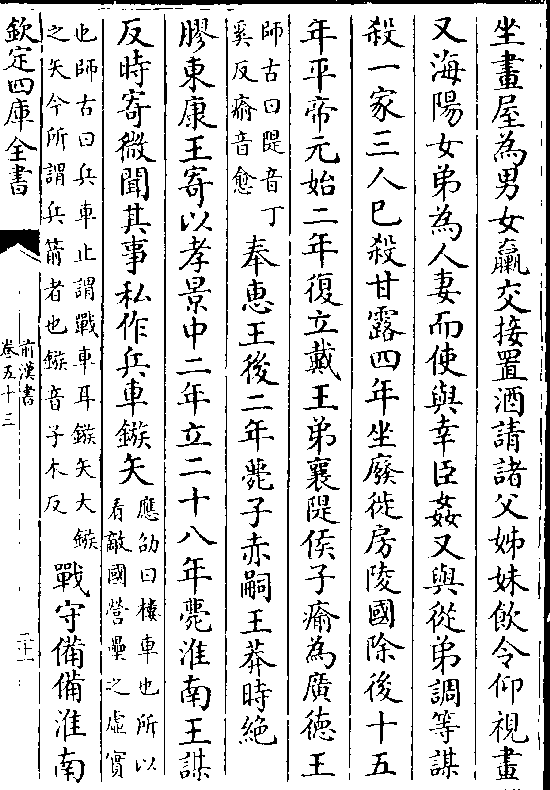 坐畫屋為男女臝交接置酒請諸父姊妹飲令仰視畫
又海陽女弟為人妻而使與幸臣姦又與從弟調等謀
殺一家三人已殺甘露四年坐廢徙房陵國除後十五
年平帝元始二年復立戴王弟襄隄侯子瘉為廣德王
師古曰隄音丁
奚反瘉音愈
奉惠王後二年薨子赤嗣王莽時絶
膠東康王寄以孝景中二年立二十八年薨淮南王謀
反時寄微聞其事私作兵車鏃矢
應劭曰樓車也所以
看敵國營壘之虛實
也師古曰兵車止謂戰車耳鏃矢大鏃
之矢今所謂兵箭者也鏃音子木反
戰守備備淮南
欽定四庫全書
前漢書
卷五十三